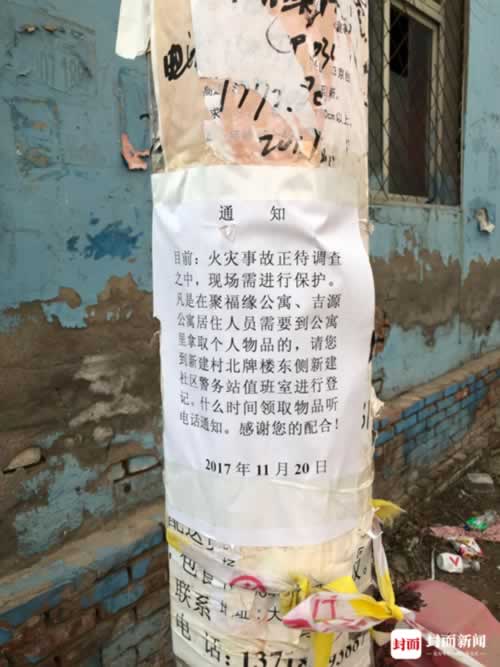 电
1772.
201
通 知
目前：火灾事故正待调查
之中，现场需进行保护。
凡是在聚福缘公寓、吉源
公寓居住人员需要到公寓
里拿取个人物品的，请您
到新建村北牌楼东侧新建
社区警务站值班室进行登
记。什么时间领取物品听
电话通知。感谢您的配合！
2017 年 11 月 20 日
联系 地址：大
电话：137
封面 封面新闻